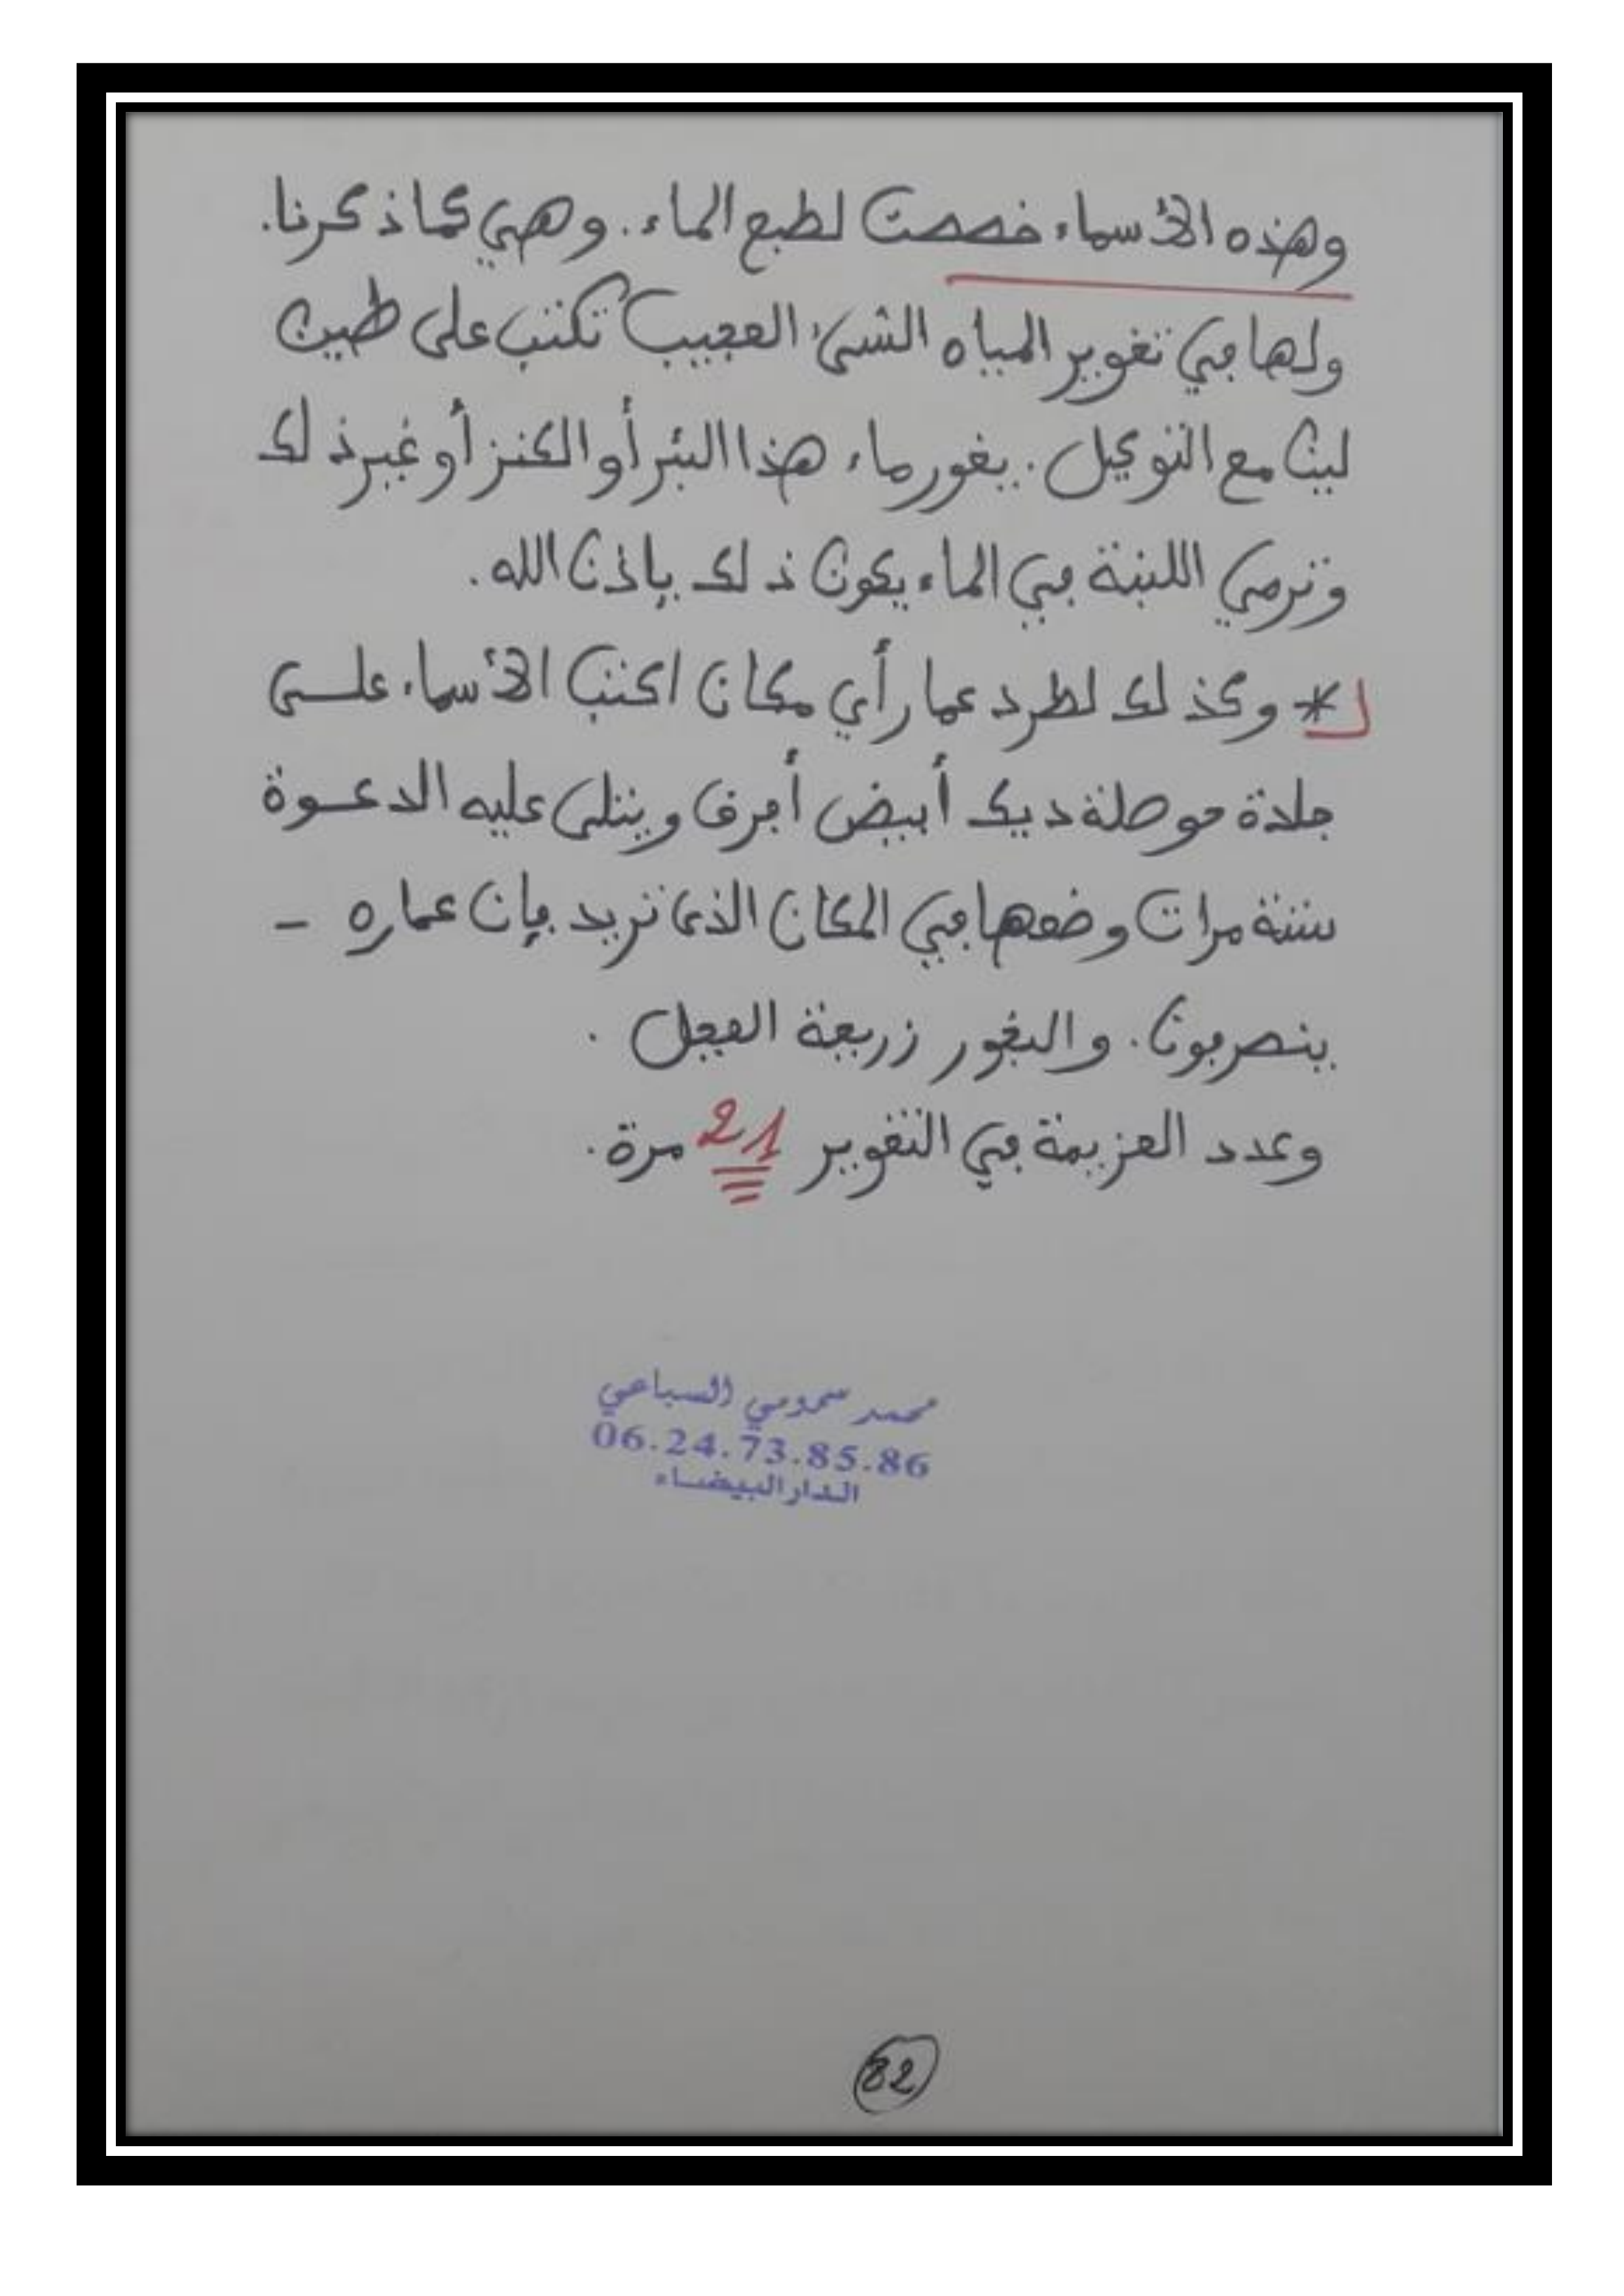 وهذه الأسماء خصصت لطبع الماء. وهي كما ذكرنا.
ولها في تغوير المياه الشيء العجيب تكتب على طين
لين مع التوكيل. يغور ماء هذا البئر أو الكنز أو غير ذلك
وترمي اللبنة في الماء يكون ذلك بإذن الله.
* وكذلك لطرد عمار أي مكان اكتب الأسماء على
جلدة حوصلة ديك أبيض أفرق ويتلى عليه الدعوة
ستة مرات وضعها في المكان الذي تريد فإن عماره -
ينصرفون. والبخور زريعة الفجل.
وعدد العزيمة في التغوير 21 مرة.
محمد سمومي السباعي
06.24.73.85.86
الدار البيضاء
82